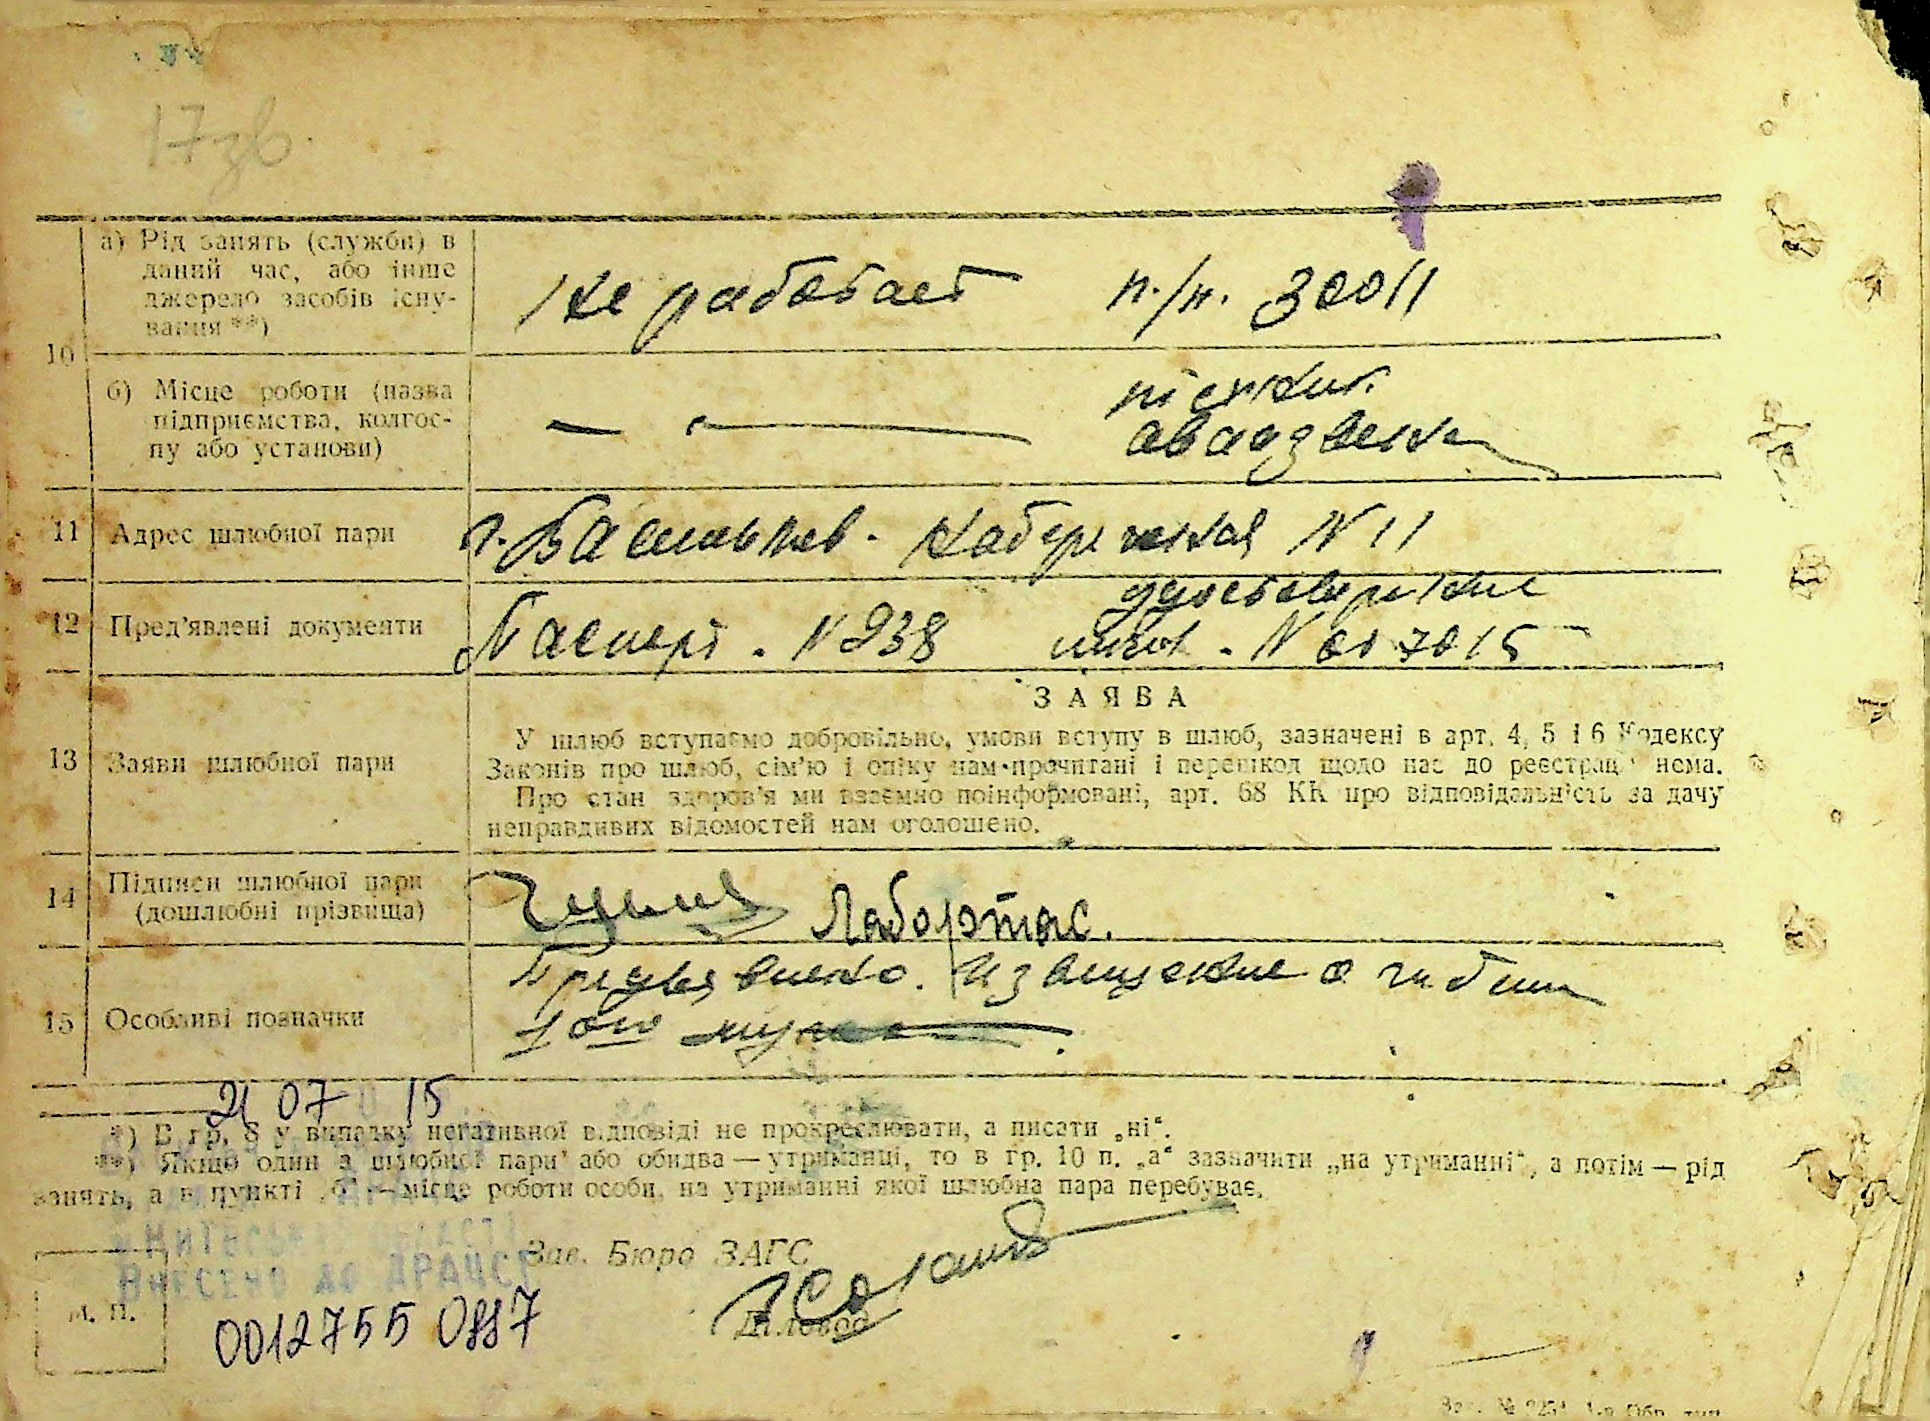 17зв.
а) Рід занять (служби) в
даний час, або інше
джерело засобів існу-
вання **)
10
не работает п/п. 30011
б) Місце роботи (назва
підприємства, колгос-
пу або установи)
— —
11 Адрес шлюбної пари
г. Васильков. Набережная N 11
12 Пред'явлені документи
удостоверение
Паспорт. N 238 личн. N 017015
ЗАЯВА
13 Заяви шлюбної пари
У шлюб вступаємо добровільно, умови вступу в шлюб, зазначені в арт. 4, 5 і 6 Кодексу
Законів про шлюб, сім'ю і опіку нам прочитані і перешкод щодо нас до реєстрації нема.
Про стан здоров'я ми взаємно поінформовані, арт. 68 КК про відповідальність за дачу
неправдивих відомостей нам оголошено.
14 Підписи шлюбної пари
(дошлюбні прізвища)
15 Особливі позначки
Предъявлено. Извещение о гибели
1ого мужа.
21 07 15
*) В гр. 8 у випадку негативної відповіді не прокреслювати, а писати „ні“.
**) Якщо один з шлюбної пари або обидва — утриманці, то в гр. 10 п. „а“ зазначити „на утриманні“, а потім — рід
занять, а в пункті „б“ — місце роботи особи, на утриманні якої шлюбна пара перебуває.
Зав. Бюро ЗАГС
Внесено до ДРАЦСГ
М. П.
Діловод
00127550887